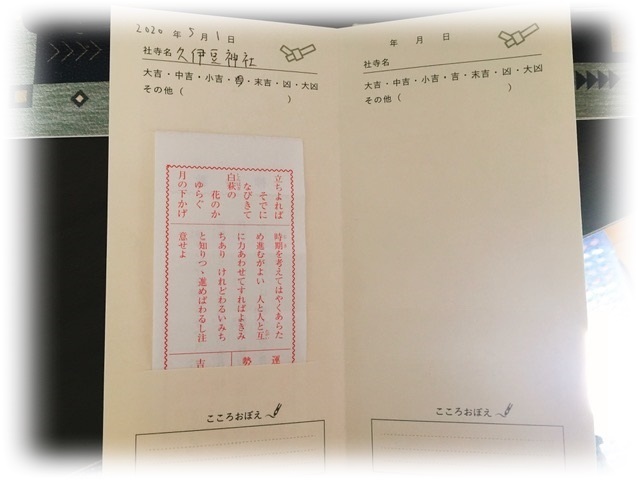 2020年5月1日
社寺名 久伊豆神社
大吉・中吉・小吉・吉・末吉・凶・大凶
その他（ ）
立ちよれば
そでに
なびきて
白萩の
花のか
ゆらぐ
月の下かげ
時期を考えてはやくあらた
め進むがよい 人と人と互
に力あわせてすればよきみ
ちあり けれどわるいみち
と知りつゝ進めばわるし注
意せよ
運
勢
吉
こころおぼえ
年 月 日
社寺名
大吉・中吉・小吉・吉・末吉・凶・大凶
その他（ ）
こころおぼえ